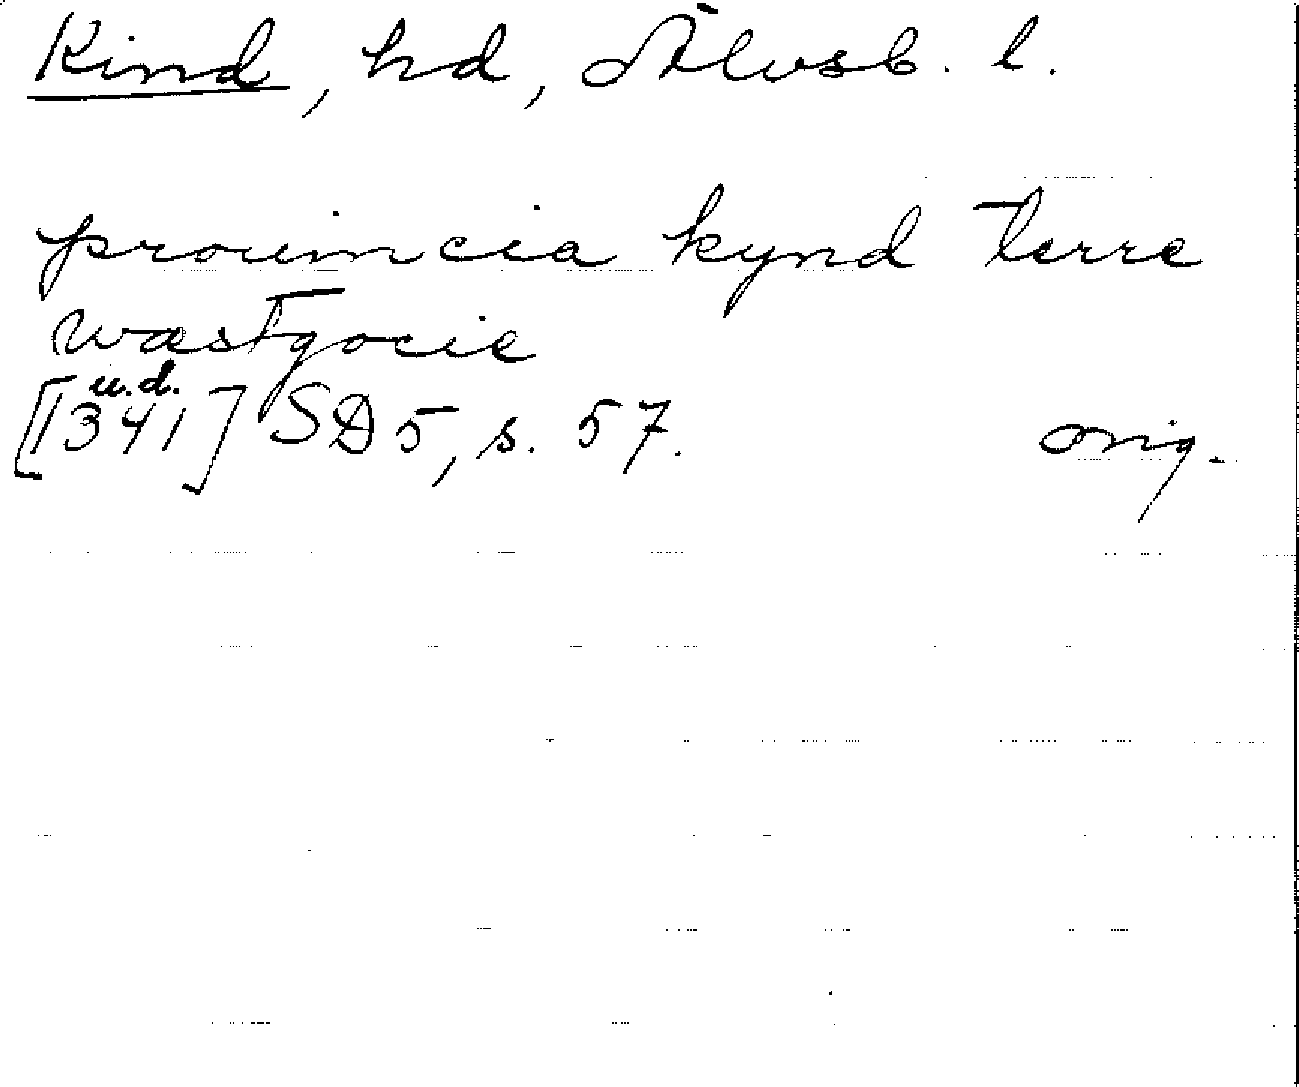 Kind, hd, Älvsb. l.
prouincia kynd terre
wæstgocie
u.d.
[1341] SD 5, s. 57. orig.